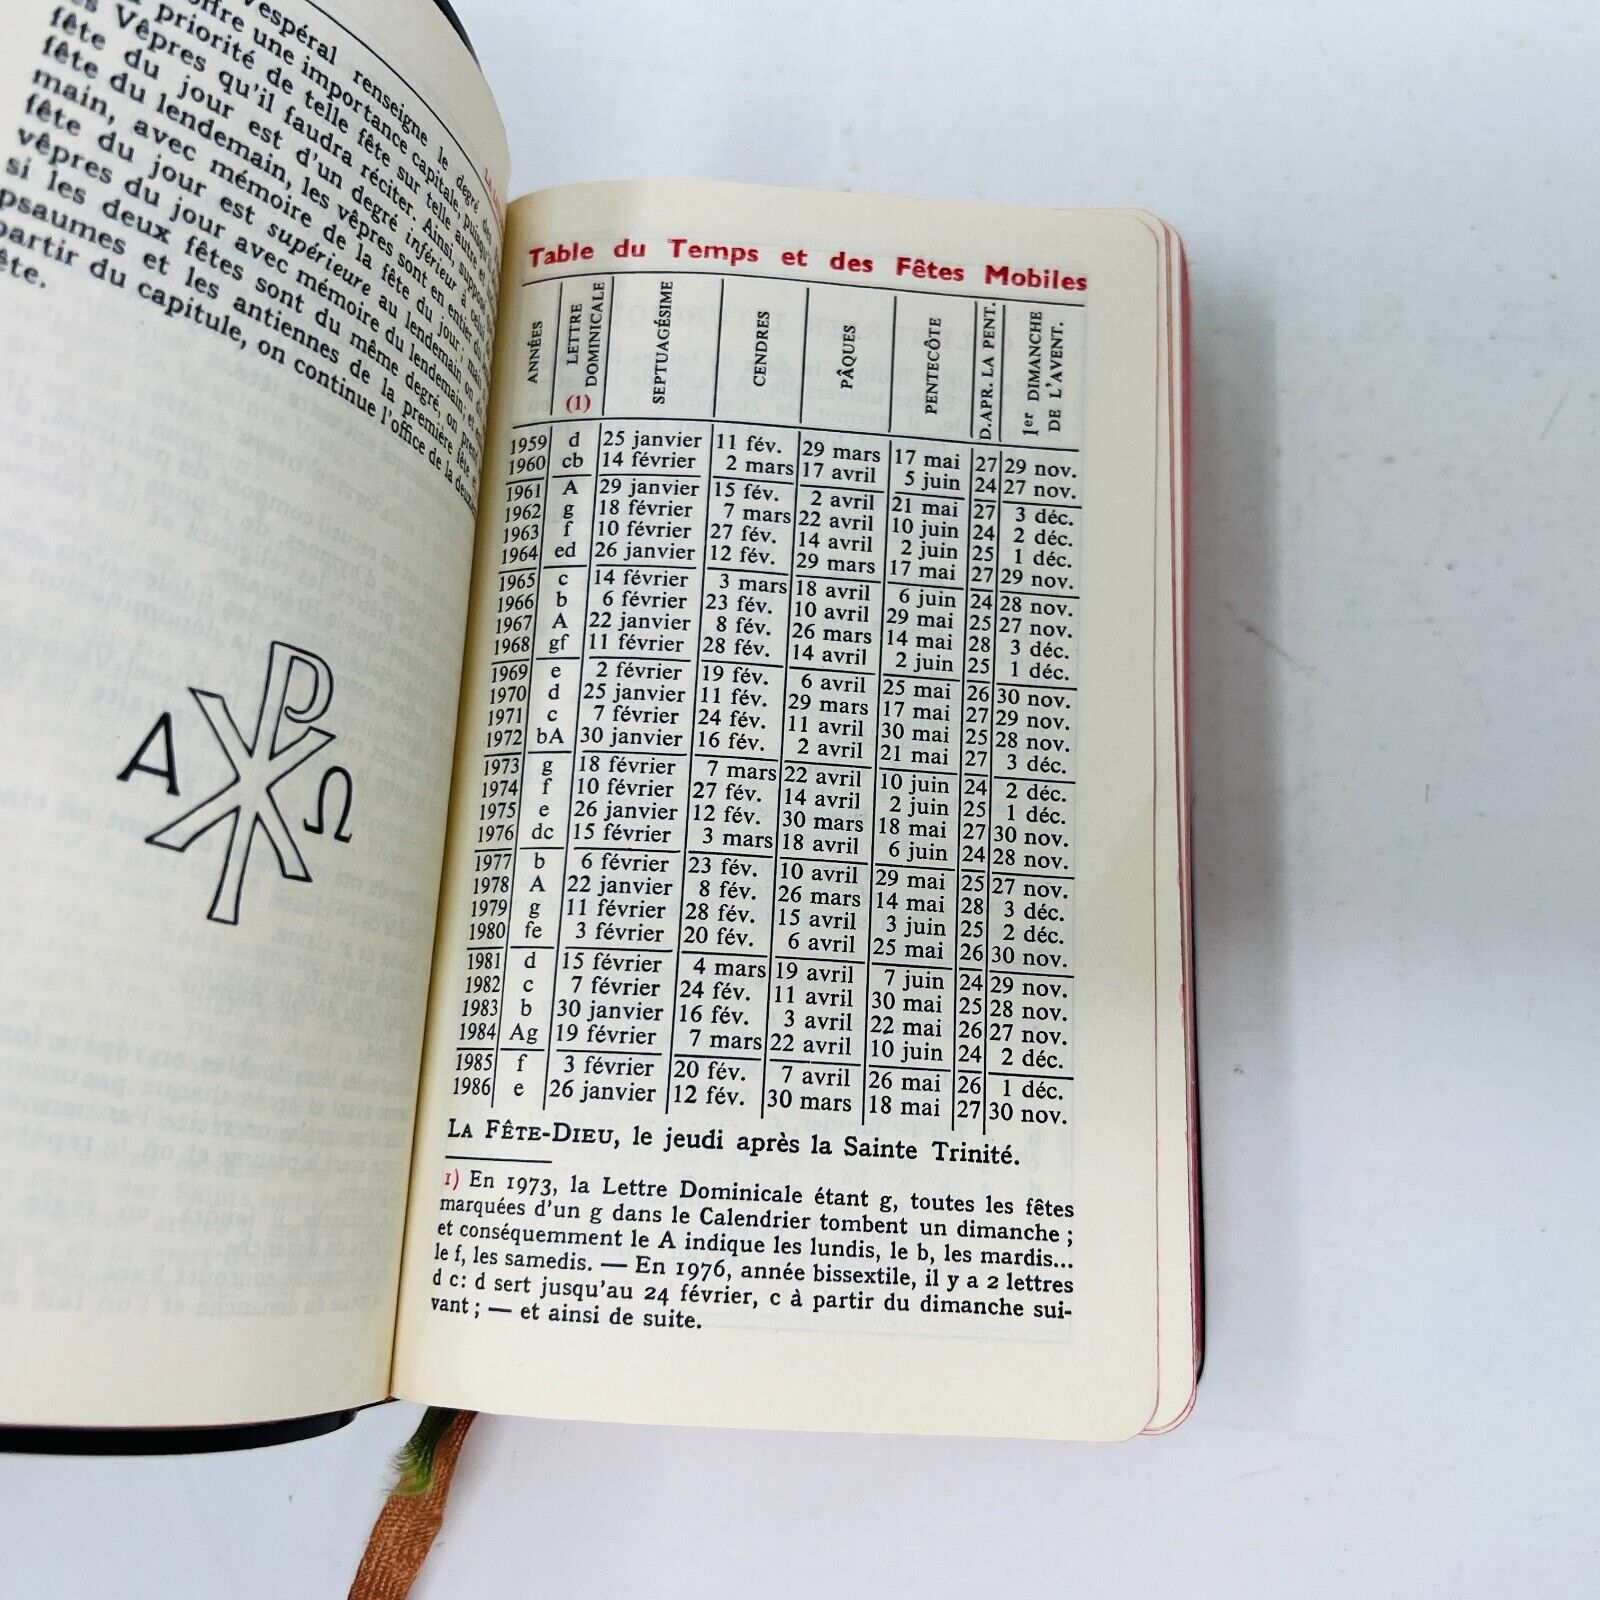 espéral renseigne le degré des
offre une importance capitale, puisqu'
priorité de telle fête sur telle autre et
es Vêpres qu'il faudra réciter. Ainsi, suppos
fête du jour est d'un degré inférieur à celui
fête du lendemain, les vêpres sont en entier du
main, avec mémoire de la fête du jour ; mais
fête du jour est supérieure au lendemain on di
vêpres du jour avec mémoire du lendemain ; et en
si les deux fêtes sont du même degré, on prend
psaumes et les antiennes de la première fête et
partir du capitule, on continue l'office de la deuxiè
ête.
Α Ω
Table du Temps et des Fêtes Mobiles
ANNÉES | LETTRE DOMINICALE (1) | SEPTUAGÉSIME | CENDRES | PÂQUES | PENTECÔTE | D.APR. LA PENT. | 1er DIMANCHE DE L'AVENT.
1959 d 25 janvier 11 fév. 29 mars 17 mai 27 29 nov.
1960 cb 14 février 2 mars 17 avril 5 juin 24 27 nov.
1961 A 29 janvier 15 fév. 2 avril 21 mai 27 3 déc.
1962 g 18 février 7 mars 22 avril 10 juin 24 2 déc.
1963 f 10 février 27 fév. 14 avril 2 juin 25 1 déc.
1964 ed 26 janvier 12 fév. 29 mars 17 mai 27 29 nov.
1965 c 14 février 3 mars 18 avril 6 juin 24 28 nov.
1966 b 6 février 23 fév. 10 avril 29 mai 25 27 nov.
1967 A 22 janvier 8 fév. 26 mars 14 mai 28 3 déc.
1968 gf 11 février 28 fév. 14 avril 2 juin 25 1 déc.
1969 e 2 février 19 fév. 6 avril 25 mai 26 30 nov.
1970 d 25 janvier 11 fév. 29 mars 17 mai 27 29 nov.
1971 c 7 février 24 fév. 11 avril 30 mai 25 28 nov.
1972 bA 30 janvier 16 fév. 2 avril 21 mai 27 3 déc.
1973 g 18 février 7 mars 22 avril 10 juin 24 2 déc.
1974 f 10 février 27 fév. 14 avril 2 juin 25 1 déc.
1975 e 26 janvier 12 fév. 30 mars 18 mai 27 30 nov.
1976 dc 15 février 3 mars 18 avril 6 juin 24 28 nov.
1977 b 6 février 23 fév. 10 avril 29 mai 25 27 nov.
1978 A 22 janvier 8 fév. 26 mars 14 mai 28 3 déc.
1979 g 11 février 28 fév. 15 avril 3 juin 25 2 déc.
1980 fe 3 février 20 fév. 6 avril 25 mai 26 30 nov.
1981 d 15 février 4 mars 19 avril 7 juin 24 29 nov.
1982 c 7 février 24 fév. 11 avril 30 mai 25 28 nov.
1983 b 30 janvier 16 fév. 3 avril 22 mai 26 27 nov.
1984 Ag 19 février 7 mars 22 avril 10 juin 24 2 déc.
1985 f 3 février 20 fév. 7 avril 26 mai 26 1 déc.
1986 e 26 janvier 12 fév. 30 mars 18 mai 27 30 nov.
LA FÊTE-DIEU, le jeudi après la Sainte Trinité.
1) En 1973, la Lettre Dominicale étant g, toutes les fêtes
marquées d'un g dans le Calendrier tombent un dimanche ;
et conséquemment le A indique les lundis, le b, les mardis...
le f, les samedis. — En 1976, année bissextile, il y a 2 lettres
d c: d sert jusqu'au 24 février, c à partir du dimanche sui-
vant ; — et ainsi de suite.